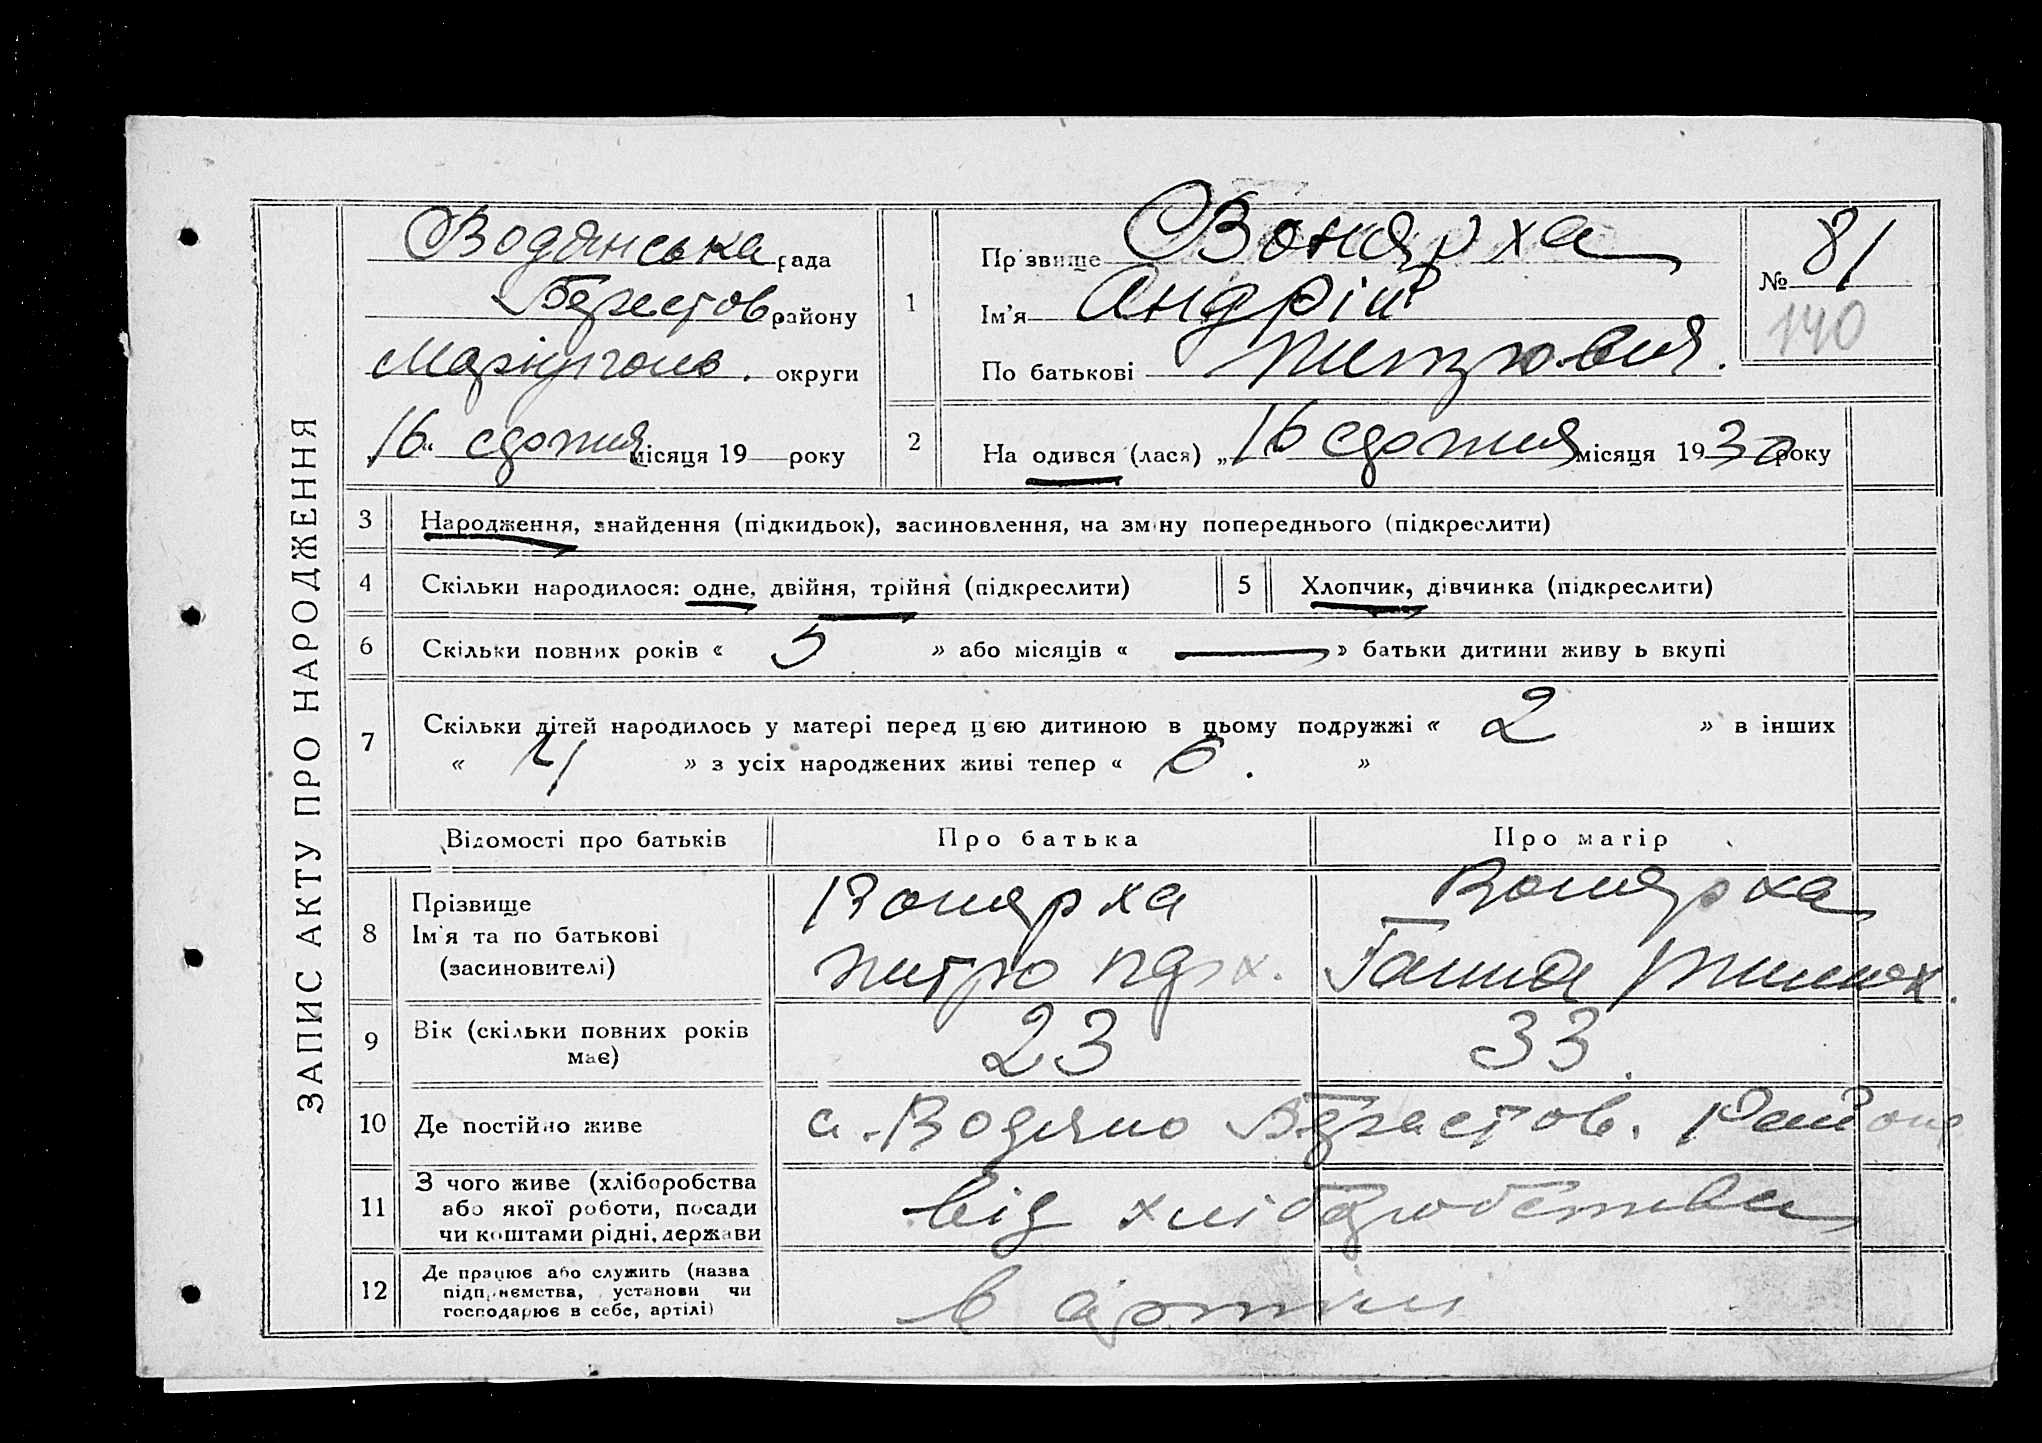 ЗАПИС АКТУ ПРО НАРОДЖЕННЯ
Водянська рада
Берестов району
Маріуполь. округи
„16“ серпня місяця 19 року
1
Прізвище Вонярха
Ім'я Андрій
По батькові Петрович.
№ 81
140
2
На одився (лася) „16 серпня місяця 1930 року
3 Народження, знайдення (підкидьок), засиновлення, на зміну попереднього (підкреслити)
4 Скільки народилося: одне, двійня, трійня (підкреслити) 5 Хлопчик, дівчинка (підкреслити)
6 Скільки повних років « 5 » або місяців « — » батьки дитини живу ь вкупі
7 Скільки дітей народилось у матері перед цією дитиною в цьому подружжі « 2 » в інших
« 4 » з усіх народжених живі тепер « 6. »
Відомості про батьків Про батька Про матір
8 Прізвище
Ім'я та по батькові
(засиновителі)
Вонярха
Петро
Вонярха
Ганна
9 Вік (скільки повних років
має)
23 33.
10 Де постійно живе с. Водяно Берестов. Району
11 З чого живе (хліборобства
або якої роботи, посади
чи коштами рідні, держави
від хліборобства
12 Де працює або служить (назва
підприємства, установи чи
господарює в себе, артілі)
в артілі